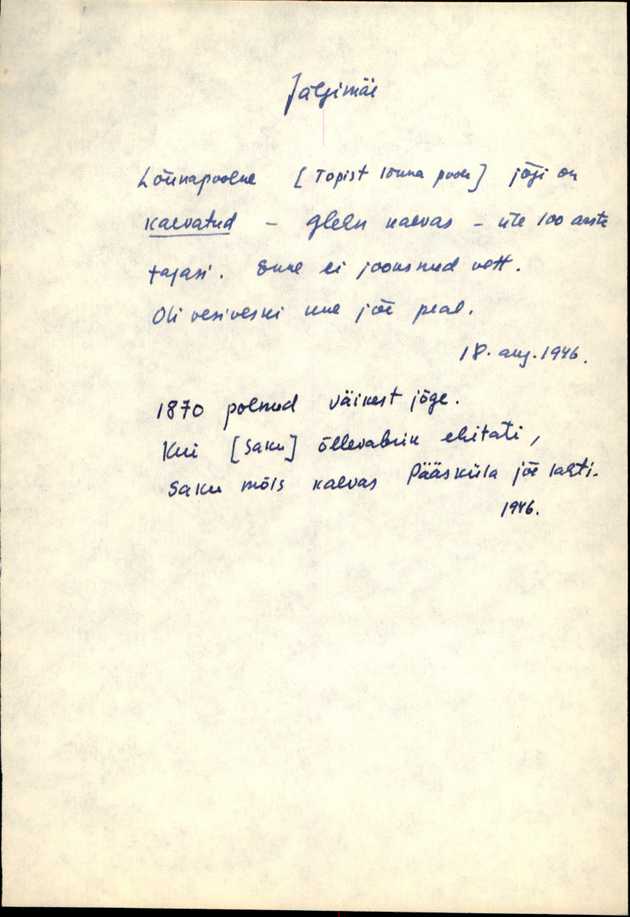 Jälgimäe
Lõunapoolne [Topist lõuna pool] jõgi on
kaevatud - Glehn kaevas - üle 100 aasta
tagasi. Enne ei jooksnud vett.
Oli vesiveski enne jõe peal.
18. aug. 1946.
1870 polnud väikest jõge.
Kui [Saku] õllevabrik ehitati,
Saku mõis kaevas Pääsküla jõe lahti.
1946.